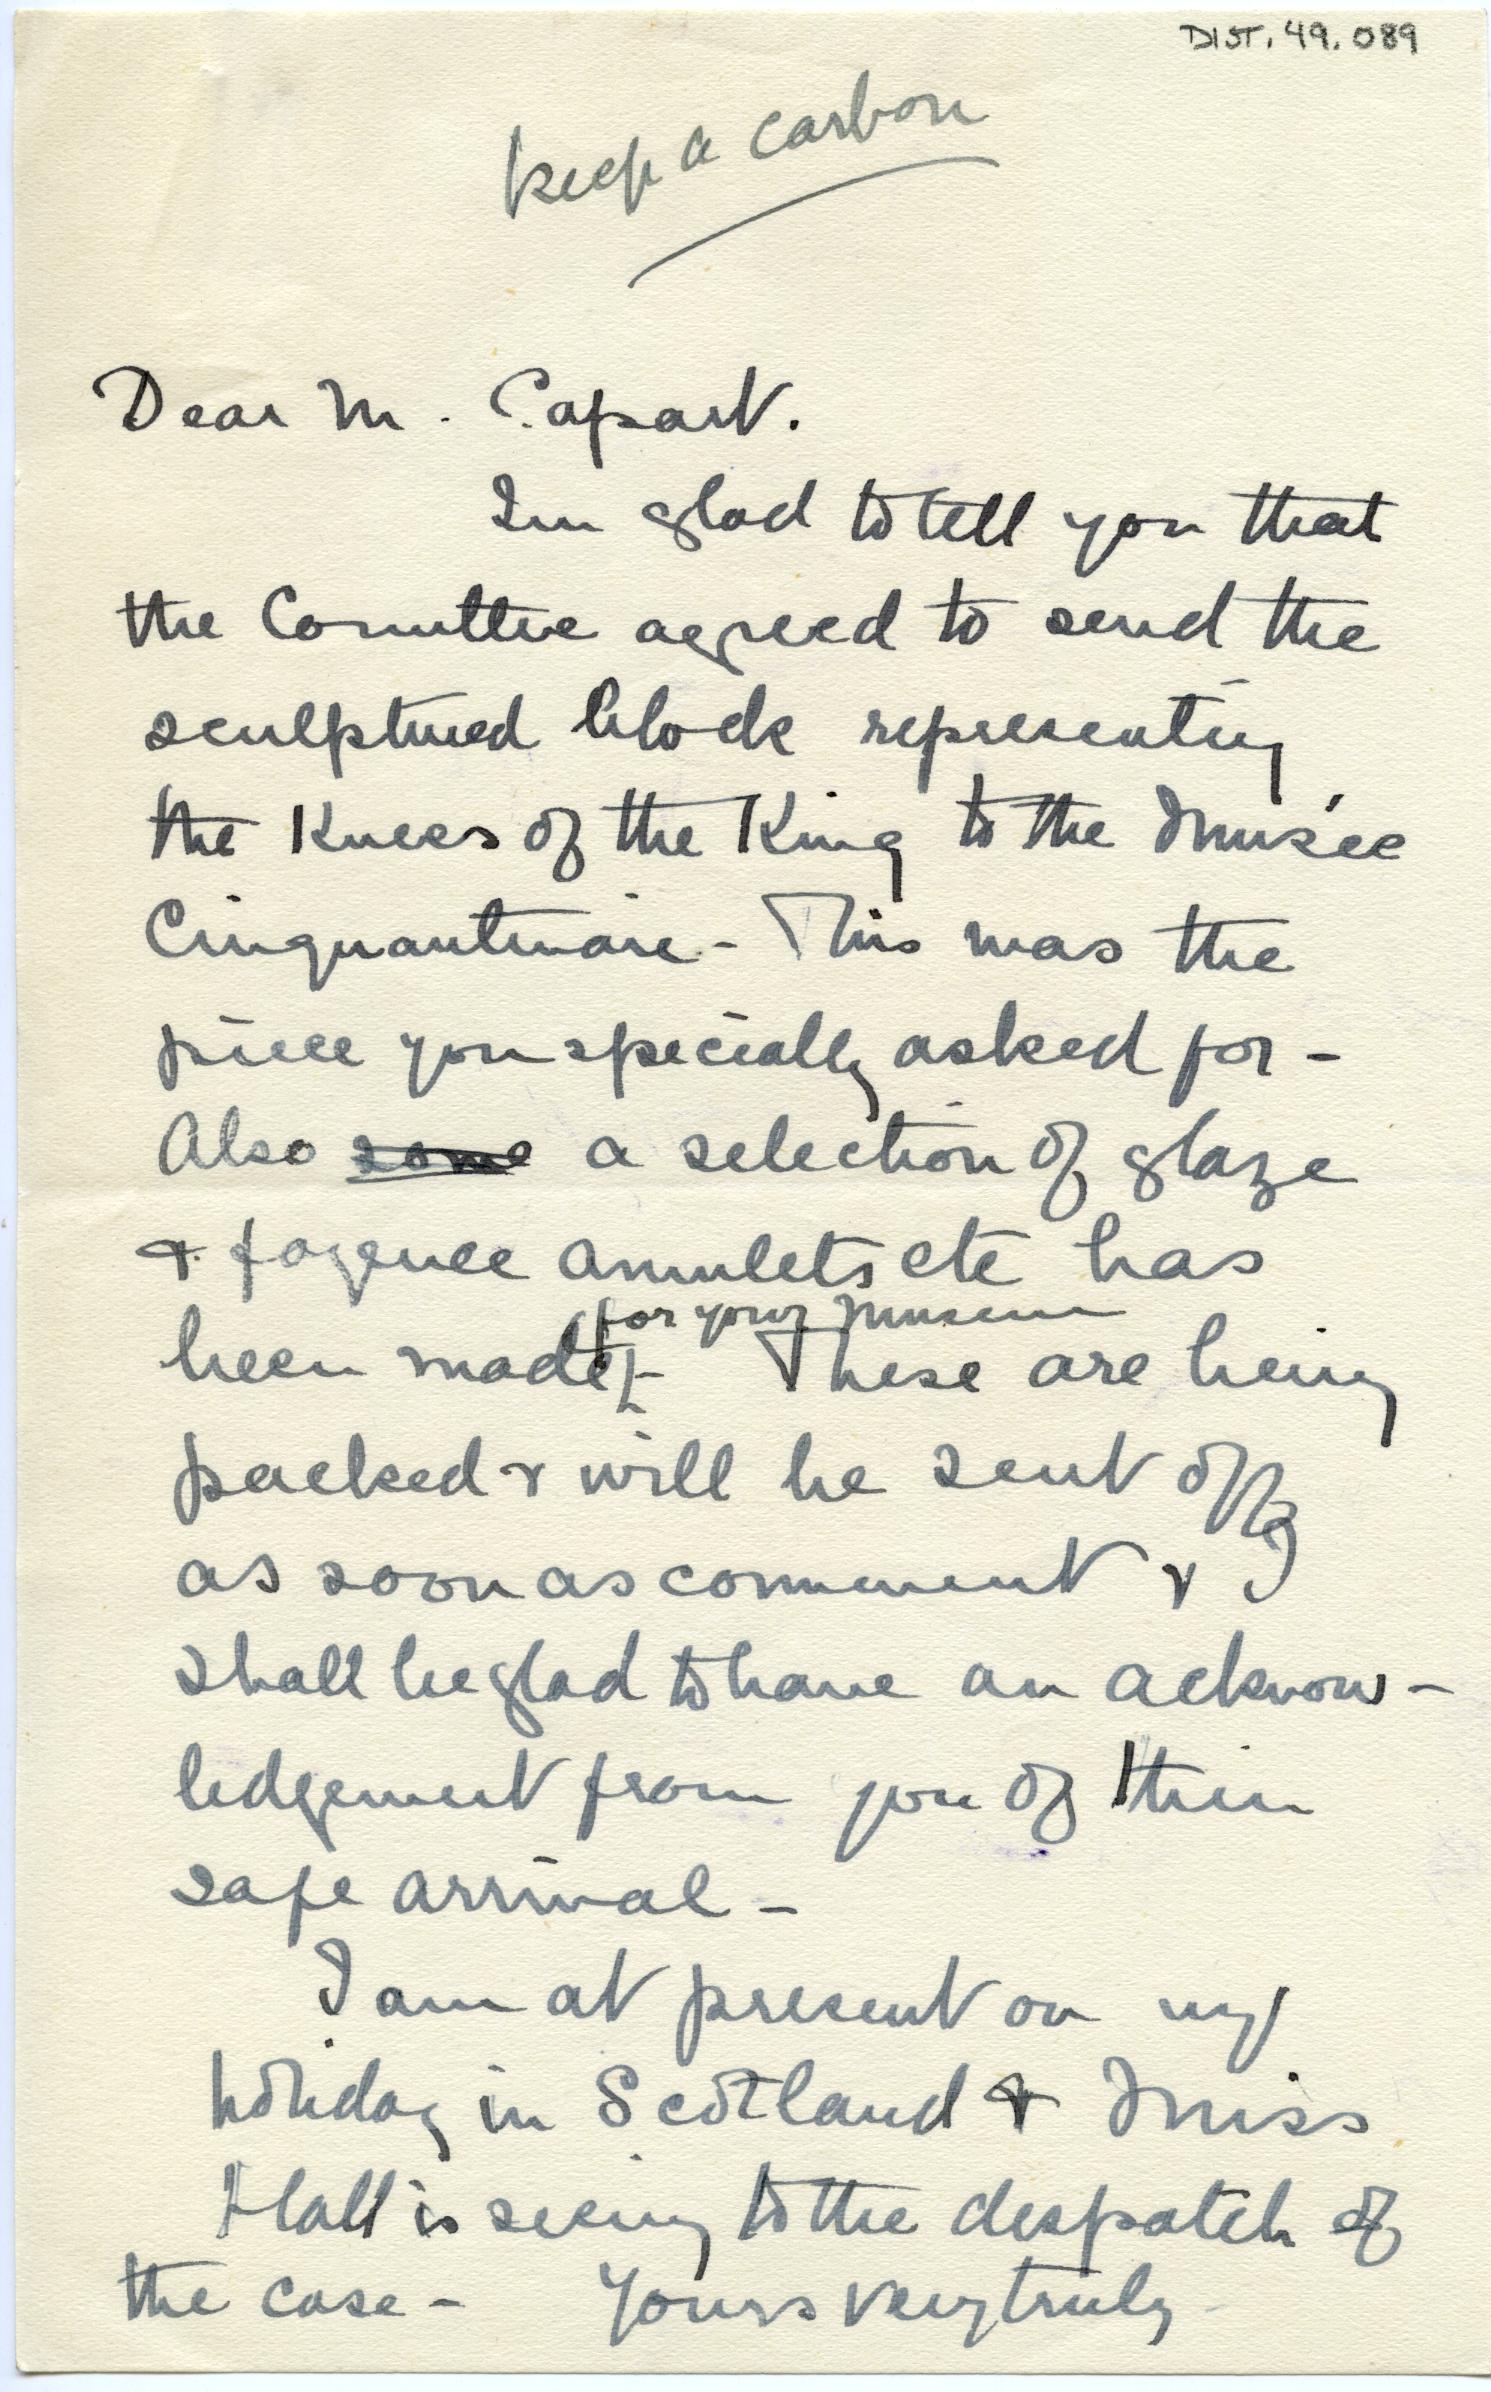 DIST. 49. 089
Keep a carbon
Dear M. Capart.
I'm glad to tell you that
the Committee agreed to send the
sculptured block representing
the Knees of the King to the Musée
Cinquantenaire - This was the
piece you specially asked for -
Also some a selection of glaze
& fayence amulets etc has
for your Museum
been made - These are being
packed & will be sent off
as soon as convenient & I
shall be glad to have an acknow-
ledgement from you of their
safe arrival -
I am at present on my
holiday in Scotland & Miss
Hall is seeing to the despatch of
the case - Yours very truly